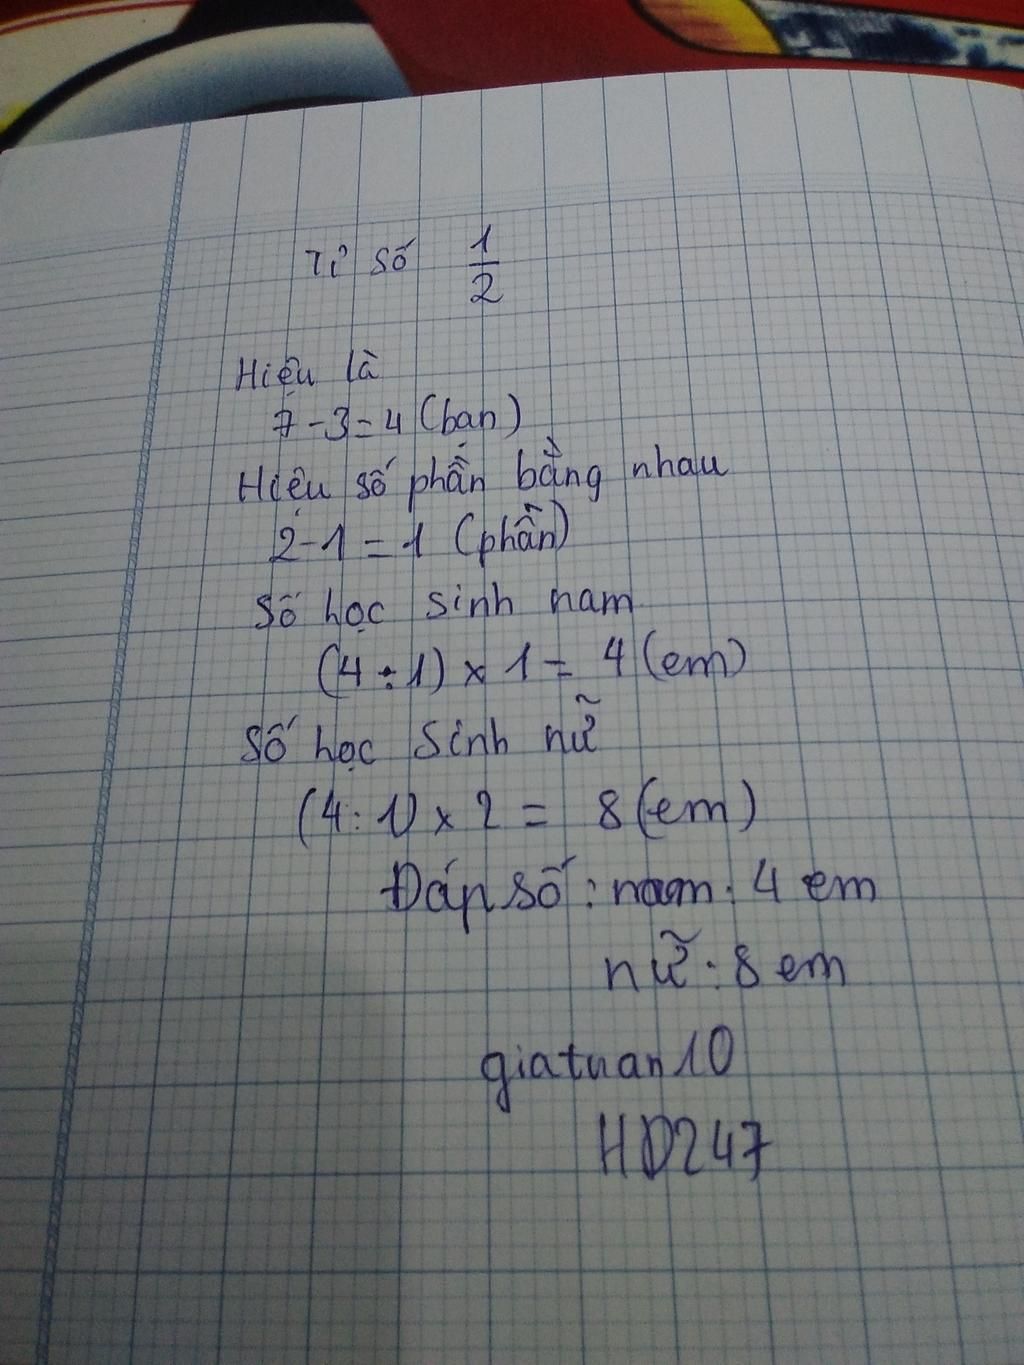 Tỉ số 1/2
Hiệu là
7 - 3 = 4 (bạn)
Hiệu số phần bằng nhau
2 - 1 = 1 (phần)
Số học sinh nam
(4 : 1) x 1 = 4 (em)
Số học sinh nữ
(4 : 1) x 2 = 8 (em)
Đáp số : nam : 4 em
nữ : 8 em
giatuan10
HD247